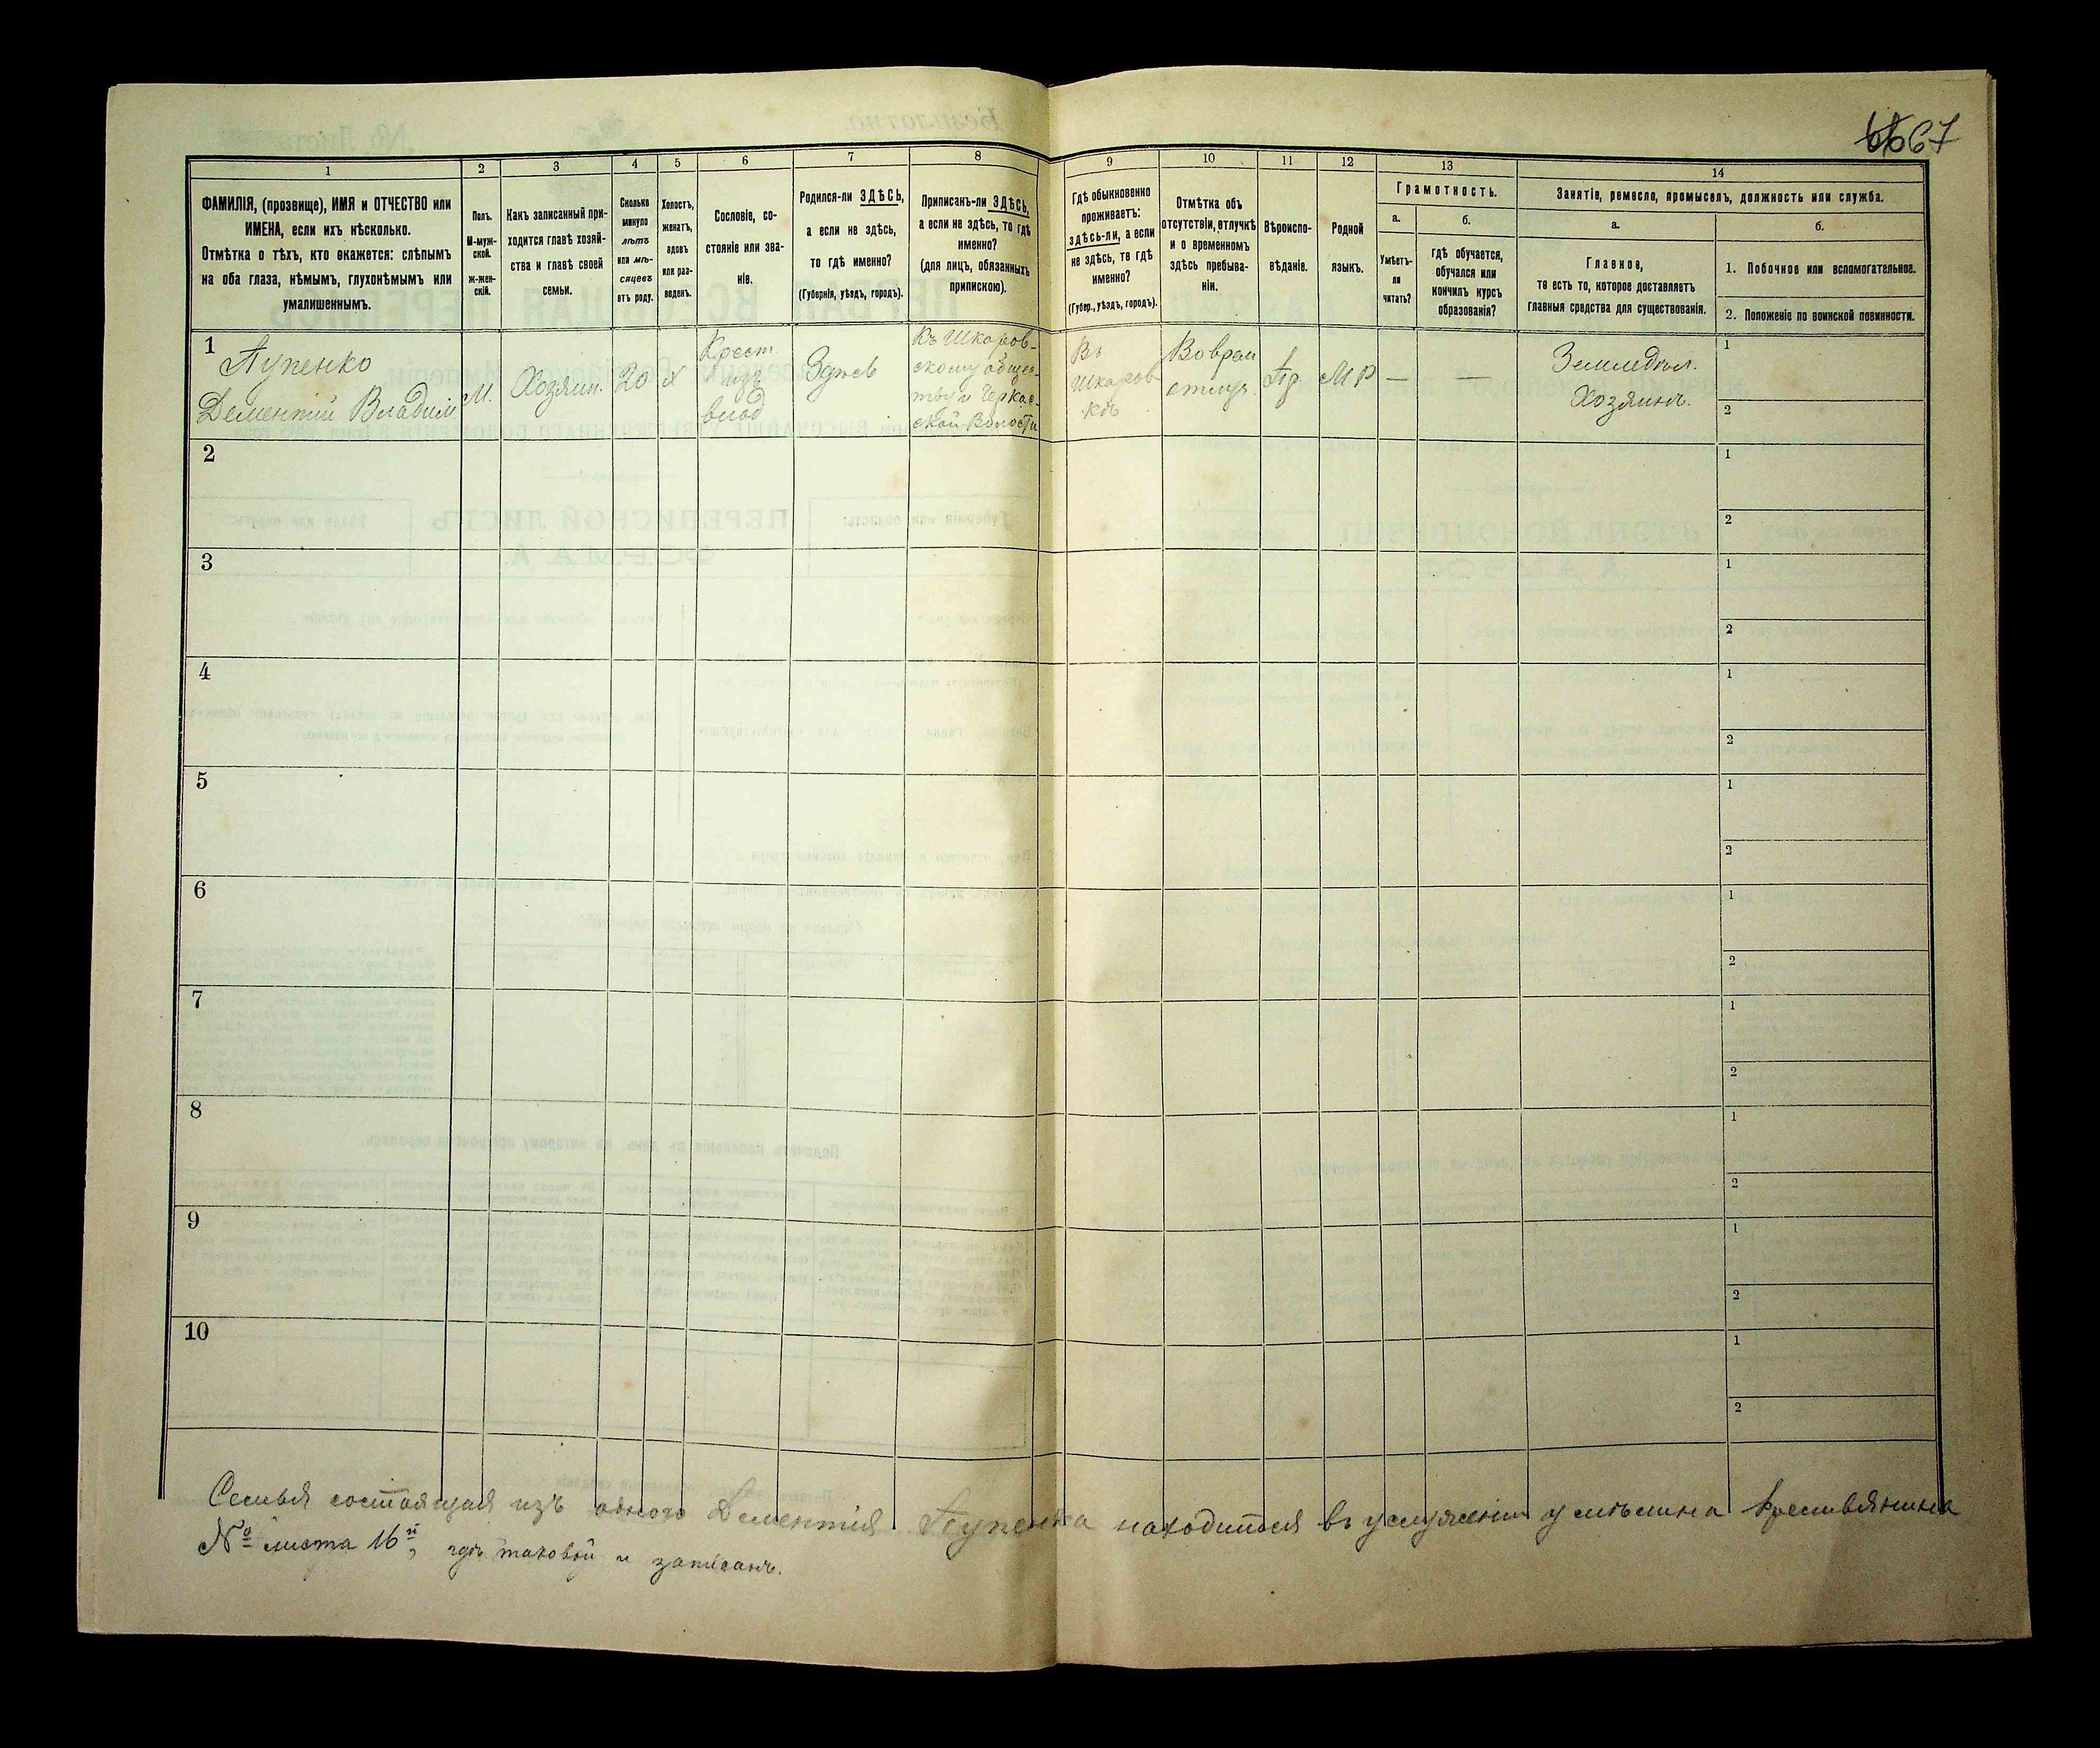 6667
1
2
3
4
5
6
7
8
9
10
11
12
13
14
ФАМИЛІЯ, (прозвище), ИМЯ и ОТЧЕСТВО или
ИМЕНА, если ихъ нѣсколько.
Отмѣтка о тѣхъ, кто окажется: слѣпымъ
на оба глаза, нѣмымъ, глухонѣмымъ или
умалишеннымъ.
Полъ.
М-муж-
ской.
ж-жен-
скій.
Какъ записанный при-
ходится главѣ хозяй-
ства и главѣ своей
семьи.
Сколько
минуло
лѣтъ
или мѣ-
сяцевъ
отъ роду.
Холостъ,
женатъ,
вдовъ
или раз-
веденъ.
Сословіе, со-
стояніе или зва-
ніе.
Родился-ли ЗДѢСЬ,
а если не здѣсь,
то гдѣ именно?
(Губернія, уѣздъ, городъ).
Приписанъ-ли ЗДѢСЬ,
а если не здѣсь, то гдѣ
именно?
(для лицъ, обязанныхъ
припискою).
Гдѣ обыкновенно
проживаетъ:
здѣсь-ли, а если
не здѣсь, то гдѣ
именно?
(Губер., уѣздъ, городъ).
Отмѣтка объ
отсутствіи, отлучкѣ
и о временномъ
здѣсь пребыва-
ніи.
Вѣроиспо-
вѣданіе.
Родной
языкъ.
Грамотность.
а.
Умѣетъ-
ли
читать?
б.
гдѣ обучается,
обучался или
кончилъ курсъ
образованія?
Занятіе, ремесло, промыселъ, должность или служба.
а.
Главное,
то есть то, которое доставляетъ
главныя средства для существованія.
б.
1. Побочное или вспомогательное.
2. Положеніе по воинской повинности.
1
Пупенко
Дементій Владим
М.
Хозяин.
20
х
Крест.
изъ
влад
Здѣсь
Къ Шкаров-
скому общес-
тву и Черкас-
ской Волости
Въ
Шкаров
кѣ
Во врем
отлуч.
Пр.
М Р
—
—
Земледѣл.
Хозяинъ.
1
2
2
1
2
3
1
2
4
1
2
5
1
2
6
1
2
7
1
2
8
1
2
9
1
2
10
1
2
Семья состоящая изъ одного Дементія Пупенка находится въ услуженіи у крестьянина
№ листа 16й, гдѣ таковой и записанъ.